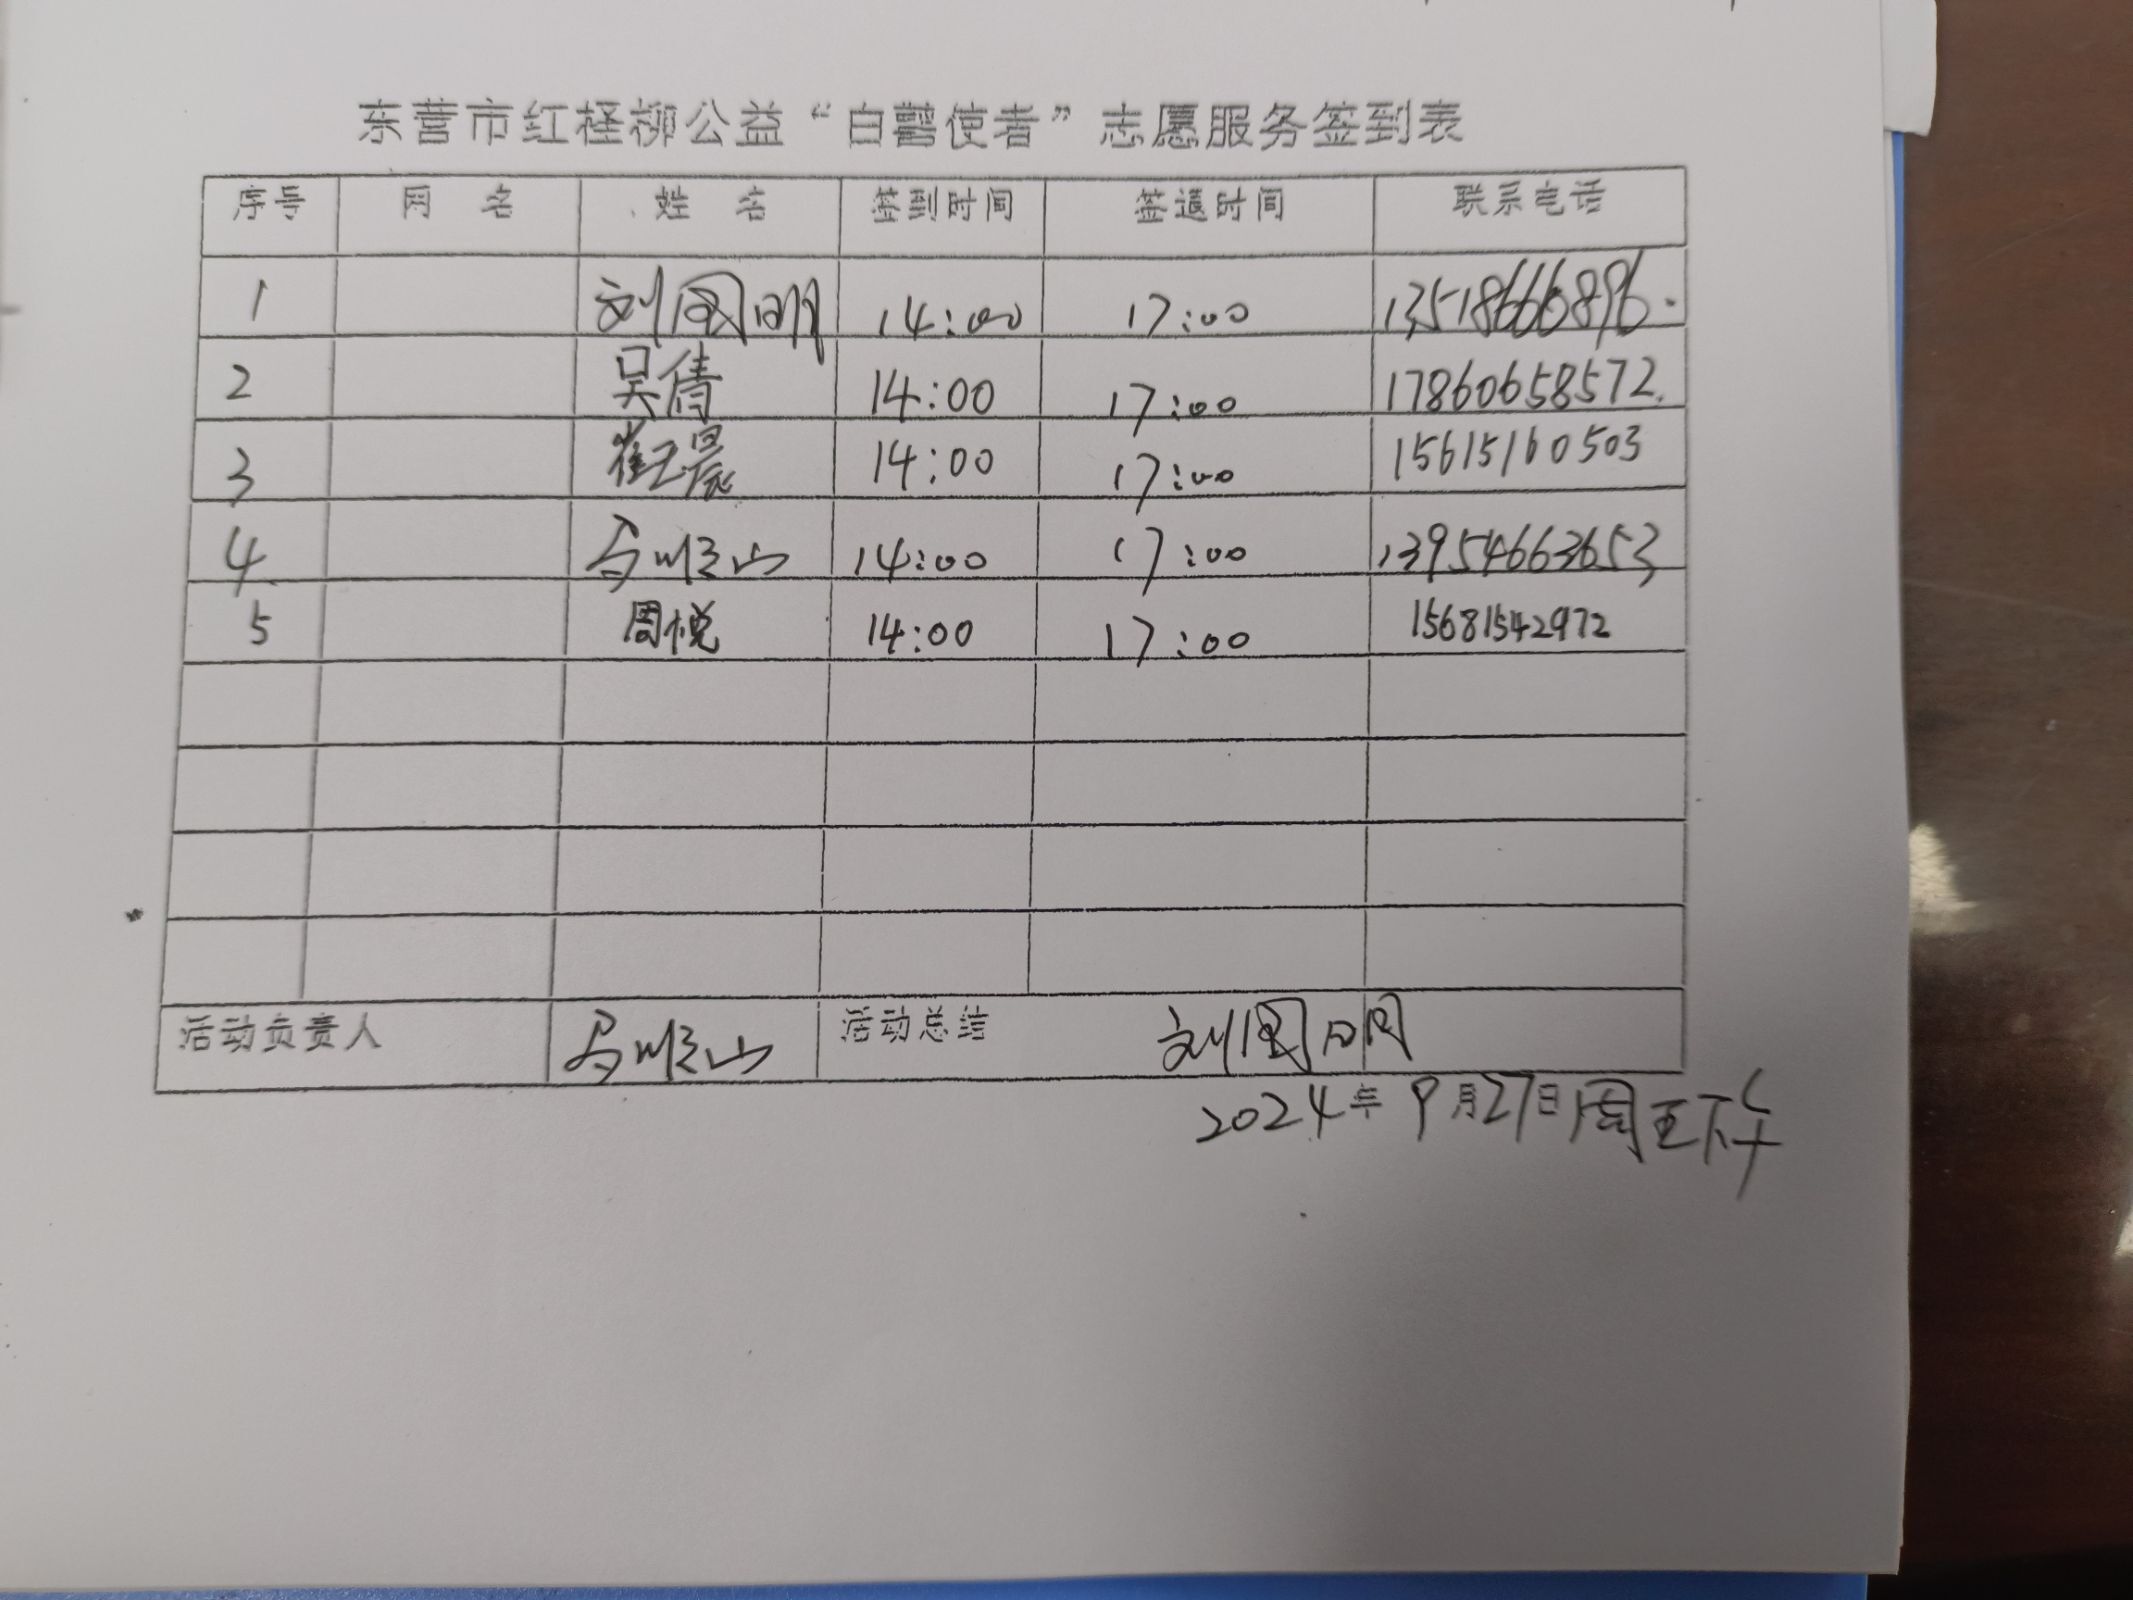 东营市红柽柳公益“白鹭使者”志愿服务签到表
序号 网名 姓名 签到时间 签退时间 联系电话
1 刘国明 14:00 17:00 13518666896.
2 吴倩 14:00 17:00 17860658572.
3 崔玉晨 14:00 17:00 15615160503
4 马顺山 14:00 17:00 13954663653
5 周悦 14:00 17:00 15681542972
活动负责人 马顺山 活动总结 刘国明
2024年9月27日周五下午